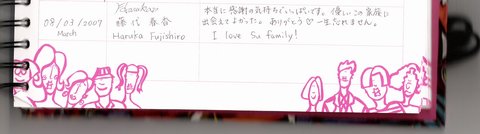 本当に感謝の気持ちでいっぱいです。優しいこの家族に
出会えてよかった。ありがとう♡一生忘れません。
08/03/2007
March
藤代 春香
Haruka Fujishiro
I love Su family!